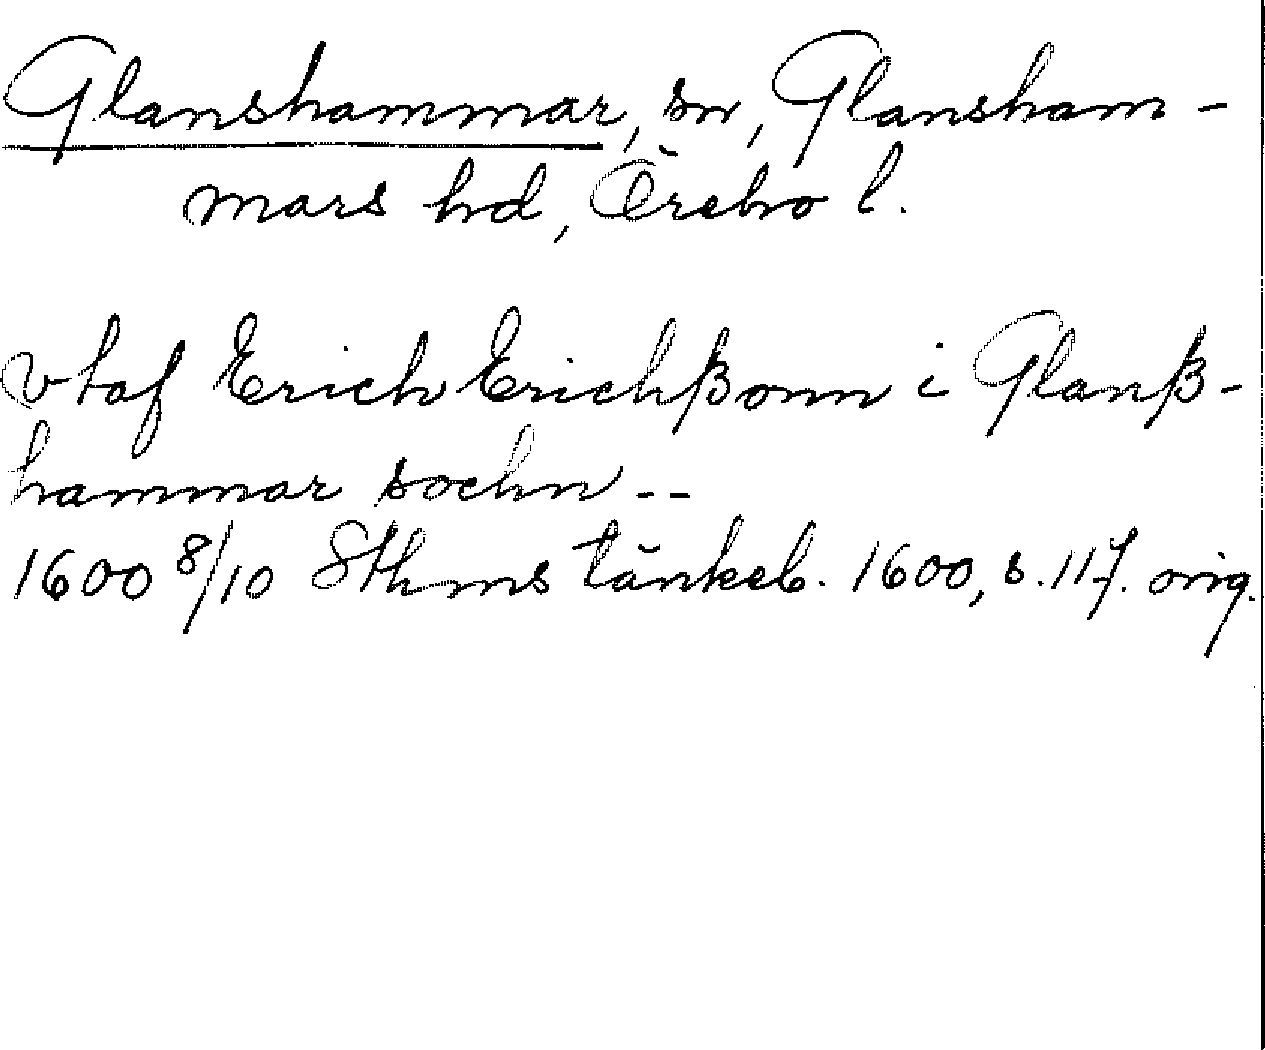 Glanshammar, sn, Glansham-
mars hd, Örebro l.
vtaf Erich Erichßonn i Glanß-
hammar sochn --
1600 8/10 Sthms tänkeb. 1600, s. 117. orig.